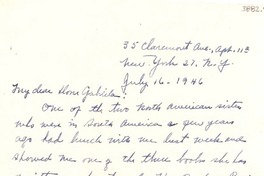 3882.
35 Claremont Ave., Apt. 113
New York 27, N.Y.
July 16 - 1946
My dear Doña Gabriela:
One of the two North American sisters
who were in South America a few years
ago had lunch with me last week and
showed me one of the three books she has